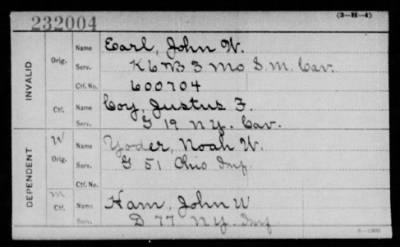 232004
(3—H—4)
Name Earl, John W.
INVALID Orig. Serv. K 6 & 3 Mo S.M. Cav.
Ctf. No. 600704
Name Coy, Justus F.
Ctf. Serv. G 19 N.Y. Cav.
W Name Yoder, Noah W.
DEPENDENT Orig. Serv. G 51 Ohio Inf
Ctf. No.
m Name Ham, John W
Ctf. Serv. D 77 N.Y. Inf